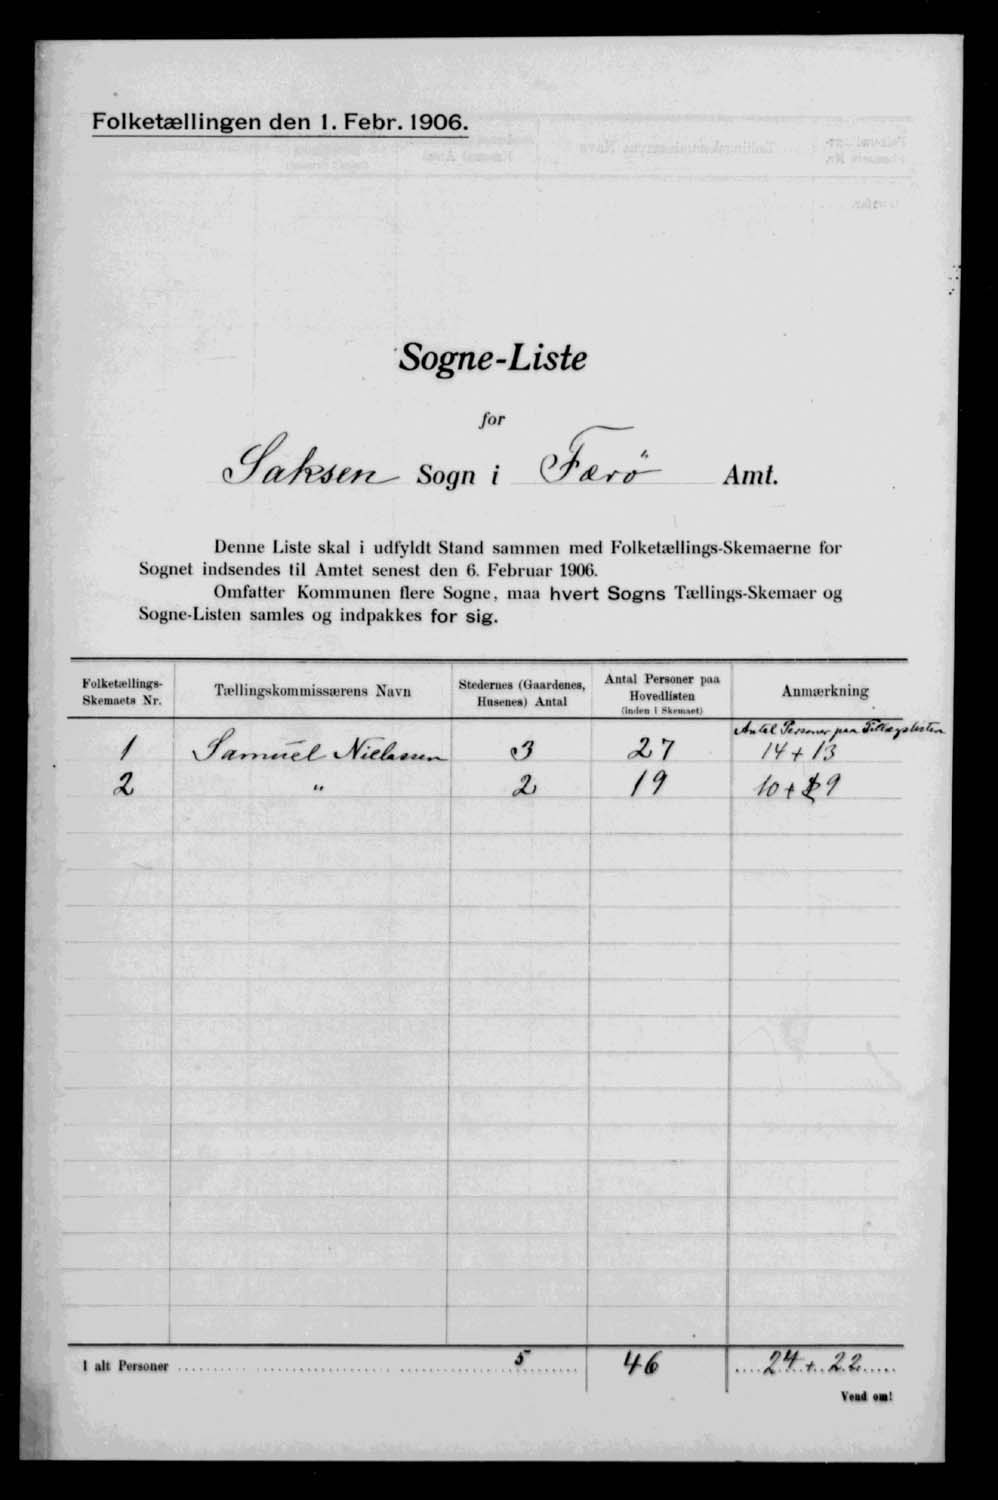 Folketællingen den 1. Febr. 1906.
Sogne-Liste
for
Saksen Sogn i Færö Amt.
Denne Liste skal i udfyldt Stand sammen med Folketællings-Skemaerne for
Sognet indsendes til Amtet senest den 6. Februar 1906.
Omfatter Kommunen flere Sogne, maa hvert Sogns Tællings-Skemaer og
Sogne-Listen samles og indpakkes for sig.
Folketællings-
Skemaets Nr.
Tællingskommissærens Navn
Stedernes (Gaardenes,
Husenes) Antal
Antal Personer paa
Hovedlisten
(inden i Skemaet)
Anmærkning
Antal Personer paa Tillægslisten
1 Samuel Nielassen 3 27 14 + 13
2 " 2 19 10 + 9
I alt Personer 5 46 24 + 22
Vend om!